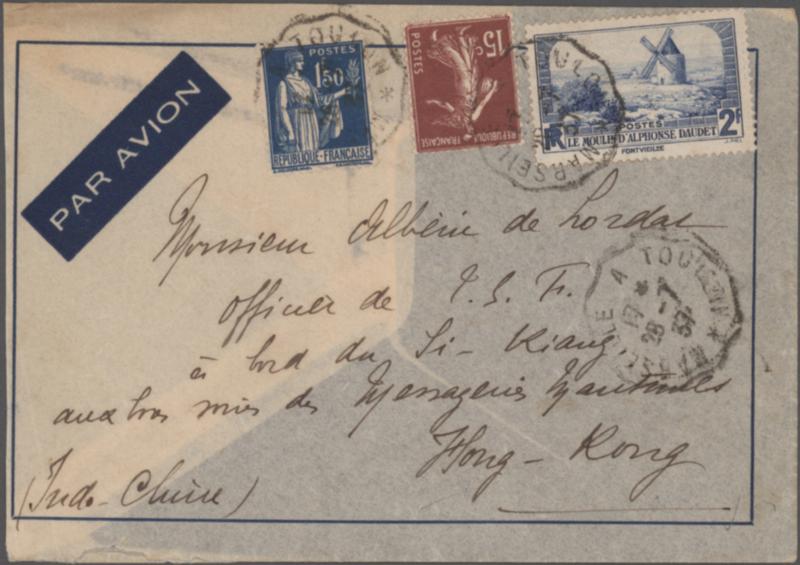 PAR AVION
POSTES
1,50
REPUBLIQUE-FRANÇAISE
15c
POSTES
REPUBLIQUE FRANÇAISE
POSTES
RF
2F
LE MOULIN D'ALPHONSE DAUDET
FONTVIEILLE
Monsieur Albéric de Lordat
officier de T. S. F.
à bord du Si-Kiang
aux bons soins des Messageries Maritimes
Hong-Kong
(Indo-Chine)
MARSEILLE A TOULON
19 *
28 -7
37